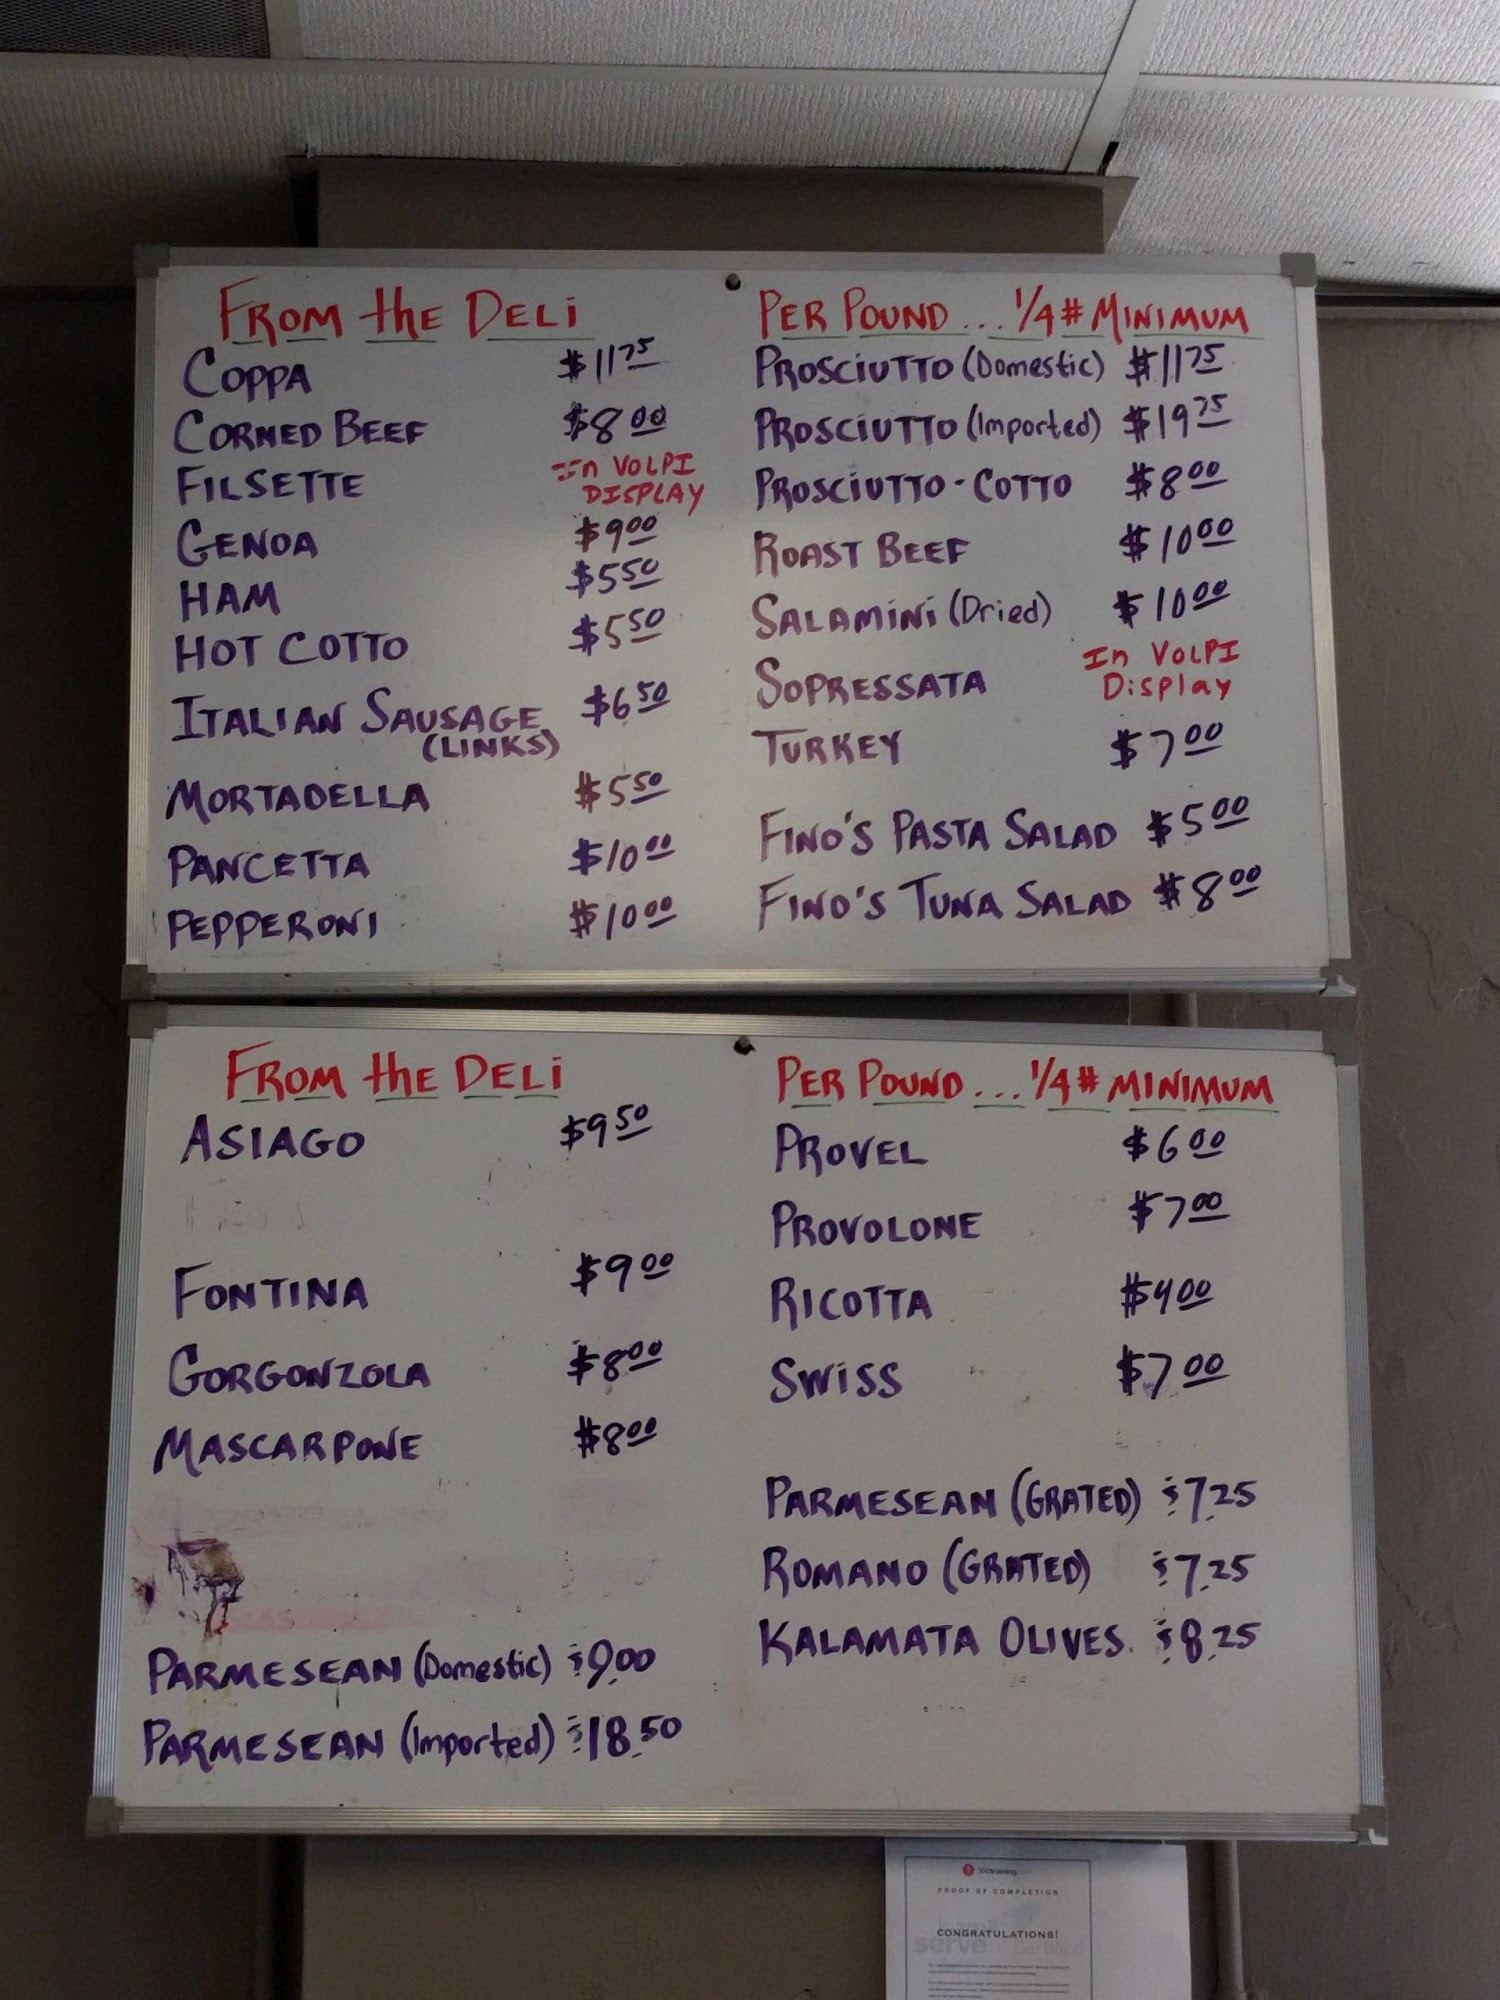 FROM the DELi
COPPA $11 75
CORNED BEEF $8 00
FILSETTE In VOLPI DISPLAY
GENOA $9 00
HAM $5 50
HOT COTTO $5 50
ITALIAN SAUSAGE (LINKS) $6 50
MORTADELLA $5 50
PANCETTA $10 00
PEPPERONI $10 00
PER POUND... 1/4# MINIMUM
PROSCIUTTO (Domestic) $11 75
PROSCIUTTO (Imported) $19 75
PROSCIUTTO-COTTO $8 00
ROAST BEEF $10 00
SALAMINI (Dried) $10 00
SOPRESSATA In VOLPI Display
TURKEY $7 00
FINO'S PASTA SALAD $5 00
FINO'S TUNA SALAD $8 00
FROM the DELi
ASIAGO $9 50
FONTINA $9 00
GORGONZOLA $8 00
MASCARPONE $8 00
PARMESEAN (Domestic) $9.00
PARMESEAN (Imported) $18.50
PER POUND... 1/4# MINIMUM
PROVEL $6 00
PROVOLONE $7 00
RICOTTA $4 00
SWISS $7 00
PARMESEAN (GRATED) $7.25
ROMANO (GRATED) $7.25
KALAMATA OLIVES. $8.25
PROOF OF COMPLETION
CONGRATULATIONS!